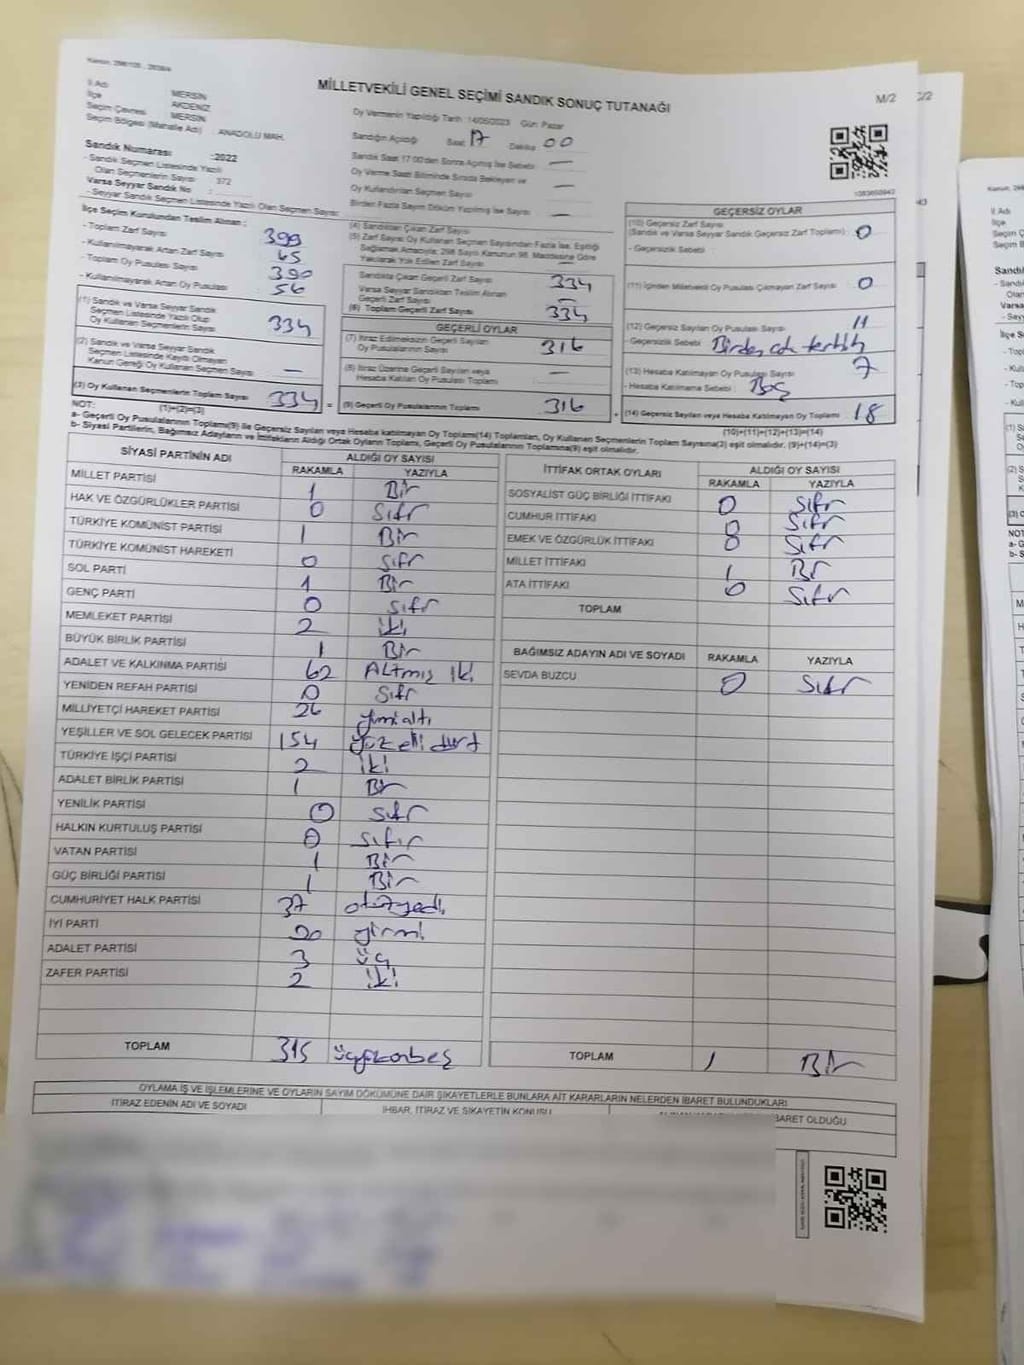 MİLLETVEKİLİ GENEL SEÇİMİ SANDIK SONUÇ TUTANAĞI
M/2
İl Adı : MERSİN
İlçe : AKDENİZ
Seçim Çevresi : MERSİN
Seçim Bölgesi (Mahalle Adı) : ANADOLU MAH.
Sandık Numarası :2022
- Sandık Seçmen Listesinde Yazılı
Olan Seçmenlerin Sayısı : 372
Varsa Seyyar Sandık No :
- Seyyar Sandık Seçmen Listesinde Yazılı Olan Seçmen Sayısı:
Oy Vermenin Yapıldığı Tarih : 14/05/2023 Gün: Pazar
Sandığın Açıldığı Saat 17 Dakika 00
Sandık Saat 17:00'den Sonra Açılmış İse Sebebi —
Oy Verme Saati Bitiminde Sırada Bekleyen ve
Oy Kullandırılan Seçmen Sayısı —
Birden Fazla Sayım Döküm Yapılmış İse Sayısı —
İlçe Seçim Kurulundan Teslim Alınan :
- Toplam Zarf Sayısı 399
- Kullanılmayarak Artan Zarf Sayısı 65
- Toplam Oy Pusulası Sayısı 390
- Kullanılmayarak Artan Oy Pusulası 56
(1) Sandık ve Varsa Seyyar Sandık
Seçmen Listesinde Yazılı Olup
Oy Kullanan Seçmenlerin Sayısı 334
(2) Sandık ve Varsa Seyyar Sandık
Seçmen Listesinde Kayıtlı Olmayan
Kanun Gereği Oy Kullanan Seçmen Sayısı —
(3) Oy Kullanan Seçmenlerin Toplam Sayısı 334 =
(1)+(2)=(3)
(4) Sandıktan Çıkan Zarf Sayısı
(5) Zarf Sayısı Oy Kullanan Seçmen Sayısından Fazla İse, Eşitliği
Sağlamak Amacıyla; 298 Sayılı Kanunun 98. Maddesine Göre
Yakılarak Yok Edilen Zarf Sayısı —
Sandıkta Çıkan Geçerli Zarf Sayısı 334
Varsa Seyyar Sandıktan Teslim Alınan
Geçerli Zarf Sayısı —
(6) Toplam Geçerli Zarf Sayısı 334
GEÇERLİ OYLAR
(7) İtiraz Edilmeksizin Geçerli Sayılan
Oy Pusulalarının Sayısı 316
(8) İtiraz Üzerine Geçerli Sayılan veya
Hesaba Katılan Oy Pusulası Toplamı —
(9) Geçerli Oy Pusulalarının Toplamı 316 +
GEÇERSİZ OYLAR
(10) Geçersiz Zarf Sayısı
(Sandık ve Varsa Seyyar Sandık Geçersiz Zarf Toplamı) : 0
- Geçersizlik Sebebi :
(11) İçinden Milletvekili Oy Pusulası Çıkmayan Zarf Sayısı 0
(12) Geçersiz Sayılan Oy Pusulası Sayısı 11
- Geçersizlik Sebebi : Birden çok tercih
(13) Hesaba Katılmayan Oy Pusulası Sayısı 7
- Hesaba Katılmama Sebebi : Boş
(14) Geçersiz Sayılan veya Hesaba Katılmayan Oy Toplamı 18
(10)+(11)+(12)+(13)=(14)
NOT:
a- Geçerli Oy Pusulaları Toplamı(9) ile Geçersiz Sayılan veya Hesaba katılmayan Oy Toplamı(14) Toplamları, Oy Kullanan Seçmenlerin Toplam Sayısına(3) eşit olmalıdır. (9)+(14)=(3)
b- Siyasi Partilerin, Bağımsız Adayların ve İttifakların Aldığı Ortak Oyların Toplamı, Geçerli Oy Pusulalarının Toplamına(9) eşit olmalıdır.
SİYASİ PARTİNİN ADI ALDIĞI OY SAYISI
RAKAMLA YAZIYLA
MİLLET PARTİSİ 1 Bir
HAK VE ÖZGÜRLÜKLER PARTİSİ 0 Sıfr
TÜRKİYE KOMÜNİST PARTİSİ 1 Bir
TÜRKİYE KOMÜNİST HAREKETİ 0 Sıfr
SOL PARTİ 1 Bir
GENÇ PARTİ 0 Sıfr
MEMLEKET PARTİSİ 2 iki
BÜYÜK BİRLİK PARTİSİ 1 Bir
ADALET VE KALKINMA PARTİSİ 62 Altmış iki
YENİDEN REFAH PARTİSİ 0 Sıfr
MİLLİYETÇİ HAREKET PARTİSİ 26 yirmialtı
YEŞİLLER VE SOL GELECEK PARTİSİ 154 yüzelli dört
TÜRKİYE İŞÇİ PARTİSİ 2 iki
ADALET BİRLİK PARTİSİ 1 Bir
YENİLİK PARTİSİ 0 Sıfr
HALKIN KURTULUŞ PARTİSİ 0 Sıfır
VATAN PARTİSİ 1 Bir
GÜÇ BİRLİĞİ PARTİSİ 1 Bir
CUMHURİYET HALK PARTİSİ 37 otuzyedi
İYİ PARTİ 20 yirmi
ADALET PARTİSİ 3 üç
ZAFER PARTİSİ 2 iki
TOPLAM 315 üçyüzonbeş
İTTİFAK ORTAK OYLARI ALDIĞI OY SAYISI
RAKAMLA YAZIYLA
SOSYALİST GÜÇ BİRLİĞİ İTTİFAKI 0 Sıfr
CUMHUR İTTİFAKI 0 Sıfr
EMEK VE ÖZGÜRLÜK İTTİFAKI 0 Sıfr
MİLLET İTTİFAKI 1 Bir
ATA İTTİFAKI 0 Sıfr
TOPLAM
BAĞIMSIZ ADAYIN ADI VE SOYADI RAKAMLA YAZIYLA
SEVDA BUZCU 0 Sıfr
TOPLAM 1 Bir
OYLAMA İŞ VE İŞLEMLERİNE VE OYLARIN SAYIM DÖKÜMÜNE DAİR ŞİKAYETLERLE BUNLARA AİT KARARLARIN NELERDEN İBARET BULUNDUKLARI
İTİRAZ EDENİN ADI VE SOYADI İHBAR, İTİRAZ VE ŞİKAYETİN KONUSU İBARET OLDUĞU